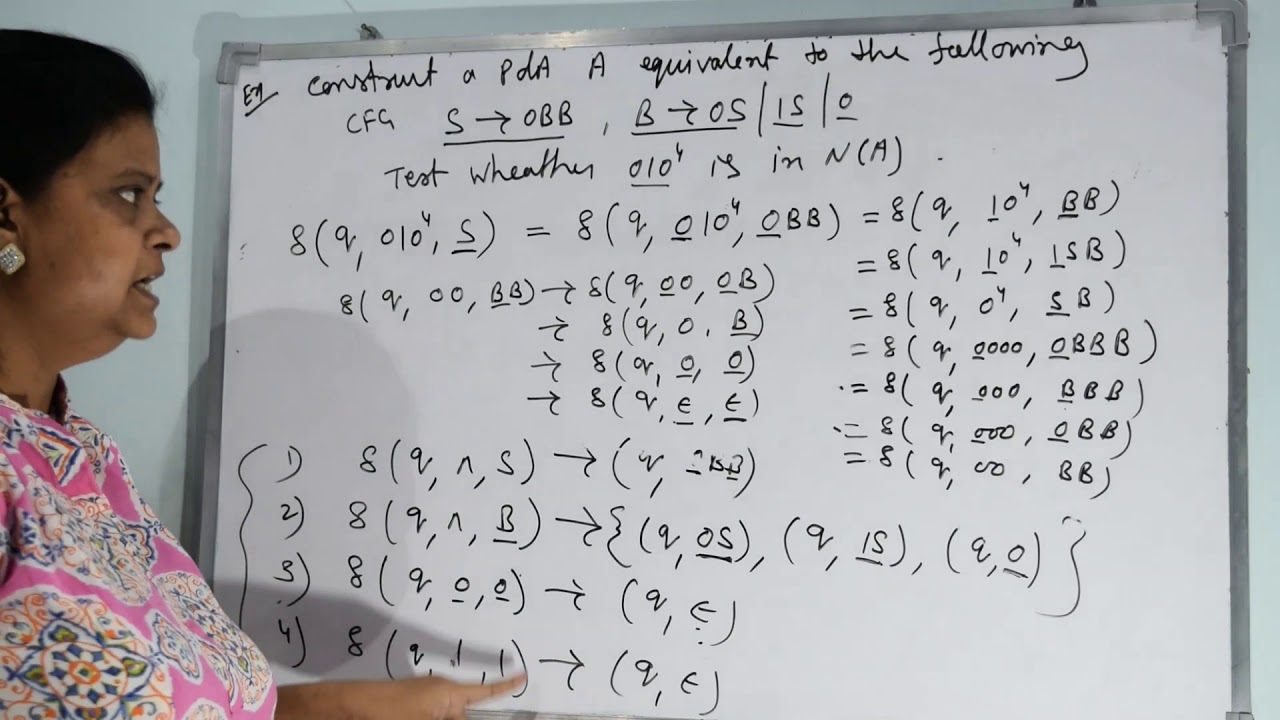 Ex construct a PdA A equivalent to the following
CFG S → 0BB , B → 0S | 1S | 0
Test wheather 010⁴ is in N(A) .
δ(q, 010⁴, S) = δ(q, 010⁴, 0BB) = δ(q, 10⁴, BB)
= δ(q, 10⁴, 1SB)
= δ(q, 0⁴, SB)
= δ(q, 0000, 0BBB)
= δ(q, 000, BBB)
= δ(q, 000, 0BB)
= δ(q, 00, BB)
δ(q, 00, BB) → δ(q, 00, 0B)
→ δ(q, 0, B)
→ δ(q, 0, 0)
→ δ(q, ε, ε)
1) δ(q, ʌ, S) → (q, 0BB)
2) δ(q, ʌ, B) → {(q, 0S), (q, 1S), (q, 0)}
3) δ(q, 0, 0) → (q, ε)
4) δ(q, 1, 1) → (q, ε)